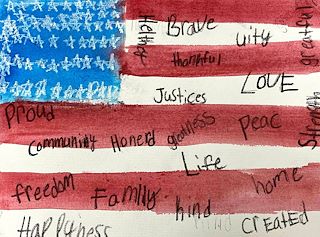 Brave
uity
greatful
thankful
LOVE
Justices
Proud
Community
Honerd
greatness
Peac
Strength
Life
freedom
Family
kind
home
Happyness
CreatEd